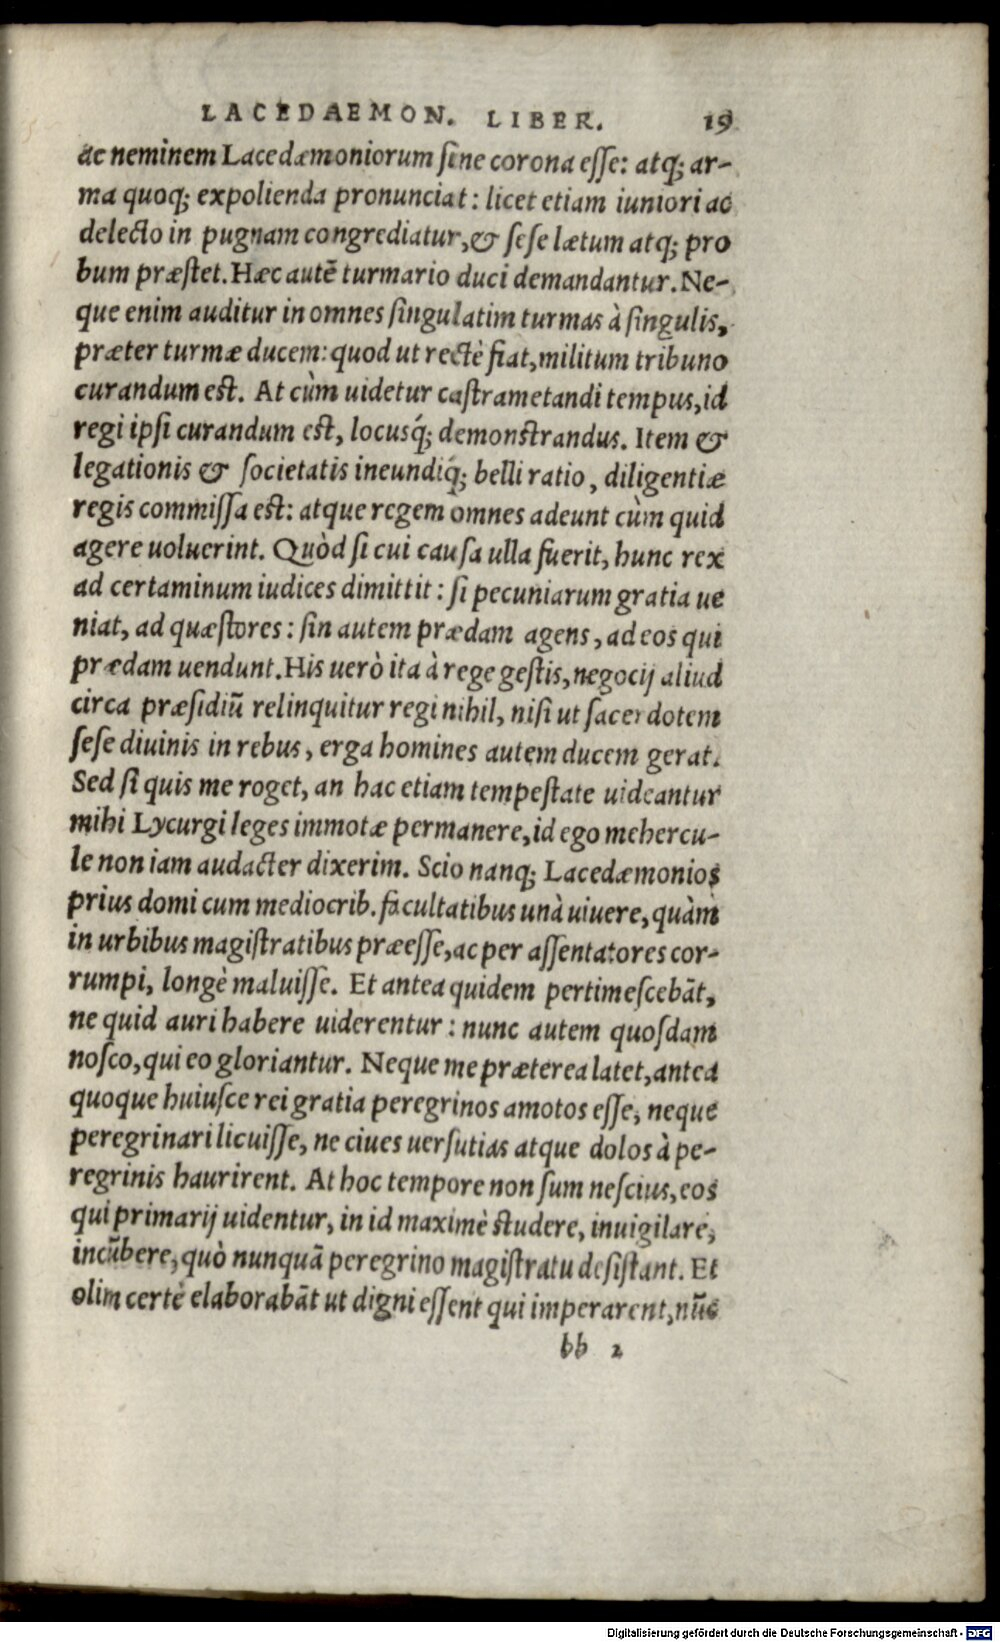 LACEDAEMON. LIBER. 19
ac neminem Lacedæmoniorum ſine corona eſſe: atq; ar-
ma quoq; expolienda pronunciat: licet etiam iuniori ac
delecto in pugnam congrediatur, & ſeſe lætum atq; pro
bum præſtet. Hæc autē turmario duci demandantur. Ne-
que enim auditur in omnes ſingulatim turmas à ſingulis,
præter turmæ ducem: quod ut rectè fiat, militum tribuno
curandum eſt. At cùm uidetur caſtrametandi tempus, id
regi ipſi curandum eſt, locusq́; demonſtrandus. Item &
legationis & ſocietatis ineundiq́; belli ratio, diligentiæ
regis commiſſa eſt: atque regem omnes adeunt cùm quid
agere uoluerint. Quòd ſi cui cauſa ulla fuerit, hunc rex
ad certaminum iudices dimittit: ſi pecuniarum gratia ue
niat, ad quæſtores: ſin autem prædam agens, ad eos qui
prædam uendunt. His uerò ita à rege geſtis, negocij aliud
circa præſidiū relinquitur regi nihil, niſi ut ſacerdotem
ſeſe diuinis in rebus, erga homines autem ducem gerat.
Sed ſi quis me roget, an hac etiam tempeſtate uideantur
mihi Lycurgi leges immotæ permanere, id ego mehercu-
le non iam audacter dixerim. Scio nanq; Lacedæmonios
prius domi cum mediocrib. facultatibus unà uiuere, quàm
in urbibus magiſtratibus præeſſe, ac per aſſentatores cor-
rumpi, longè maluiſſe. Et antea quidem pertimeſcebāt,
ne quid auri habere uiderentur: nunc autem quoſdam
noſco, qui eo gloriantur. Neque me præterea latet, antea
quoque huiuſce rei gratia peregrinos amotos eſſe, neque
peregrinari licuiſſe, ne ciues uerſutias atque dolos à pe-
regrinis haurirent. At hoc tempore non ſum neſcius, eos
qui primarij uidentur, in id maximè ſtudere, inuigilare,
incūbere, quò nunquā peregrino magiſtratu deſiſtant. Et
olim certè elaborabāt ut digni eſſent qui imperarent, nūc
bb 2
Digitalisierung gefördert durch die Deutsche Forschungsgemeinschaft - DFG